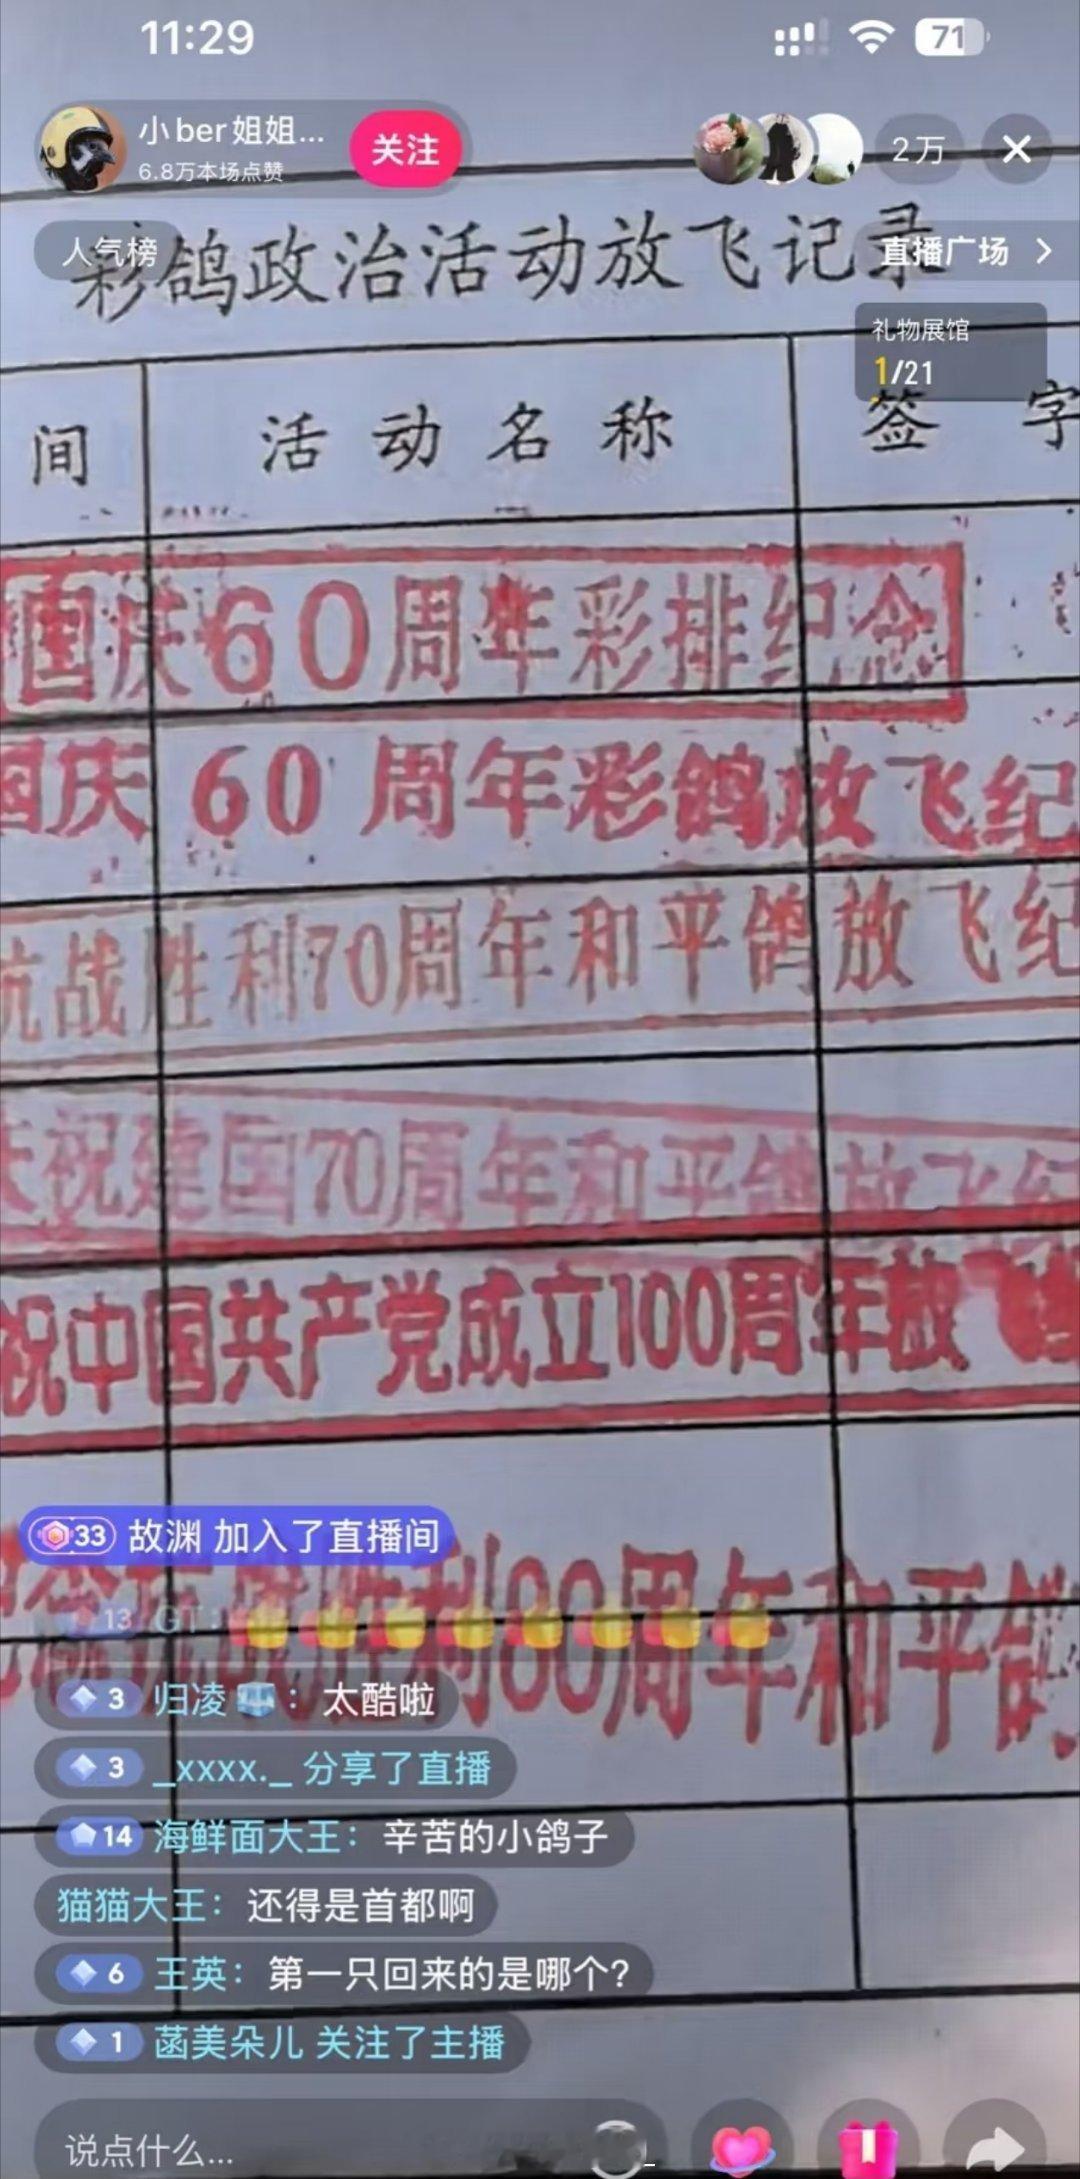 11:29
71
小ber姐姐...
6.8万本场点赞
关注
2万
人气榜
直播广场
彩鸽政治活动放飞记录
礼物展馆
1/21
间 活动名称 签字
国庆60周年彩排纪念
国庆60周年彩鸽放飞纪
抗战胜利70周年和平鸽放飞纪
庆祝建国70周年和平鸽放飞纪
祝中国共产党成立100周年放飞
33 故渊 加入了直播间
胜利80周年和平鸽
13 GT:
3 归凌：太酷啦
3 _xxxx._ 分享了直播
14 海鲜面大王：辛苦的小鸽子
猫猫大王：还得是首都啊
6 王英：第一只回来的是哪个？
1 菡美朵儿 关注了主播
说点什么...